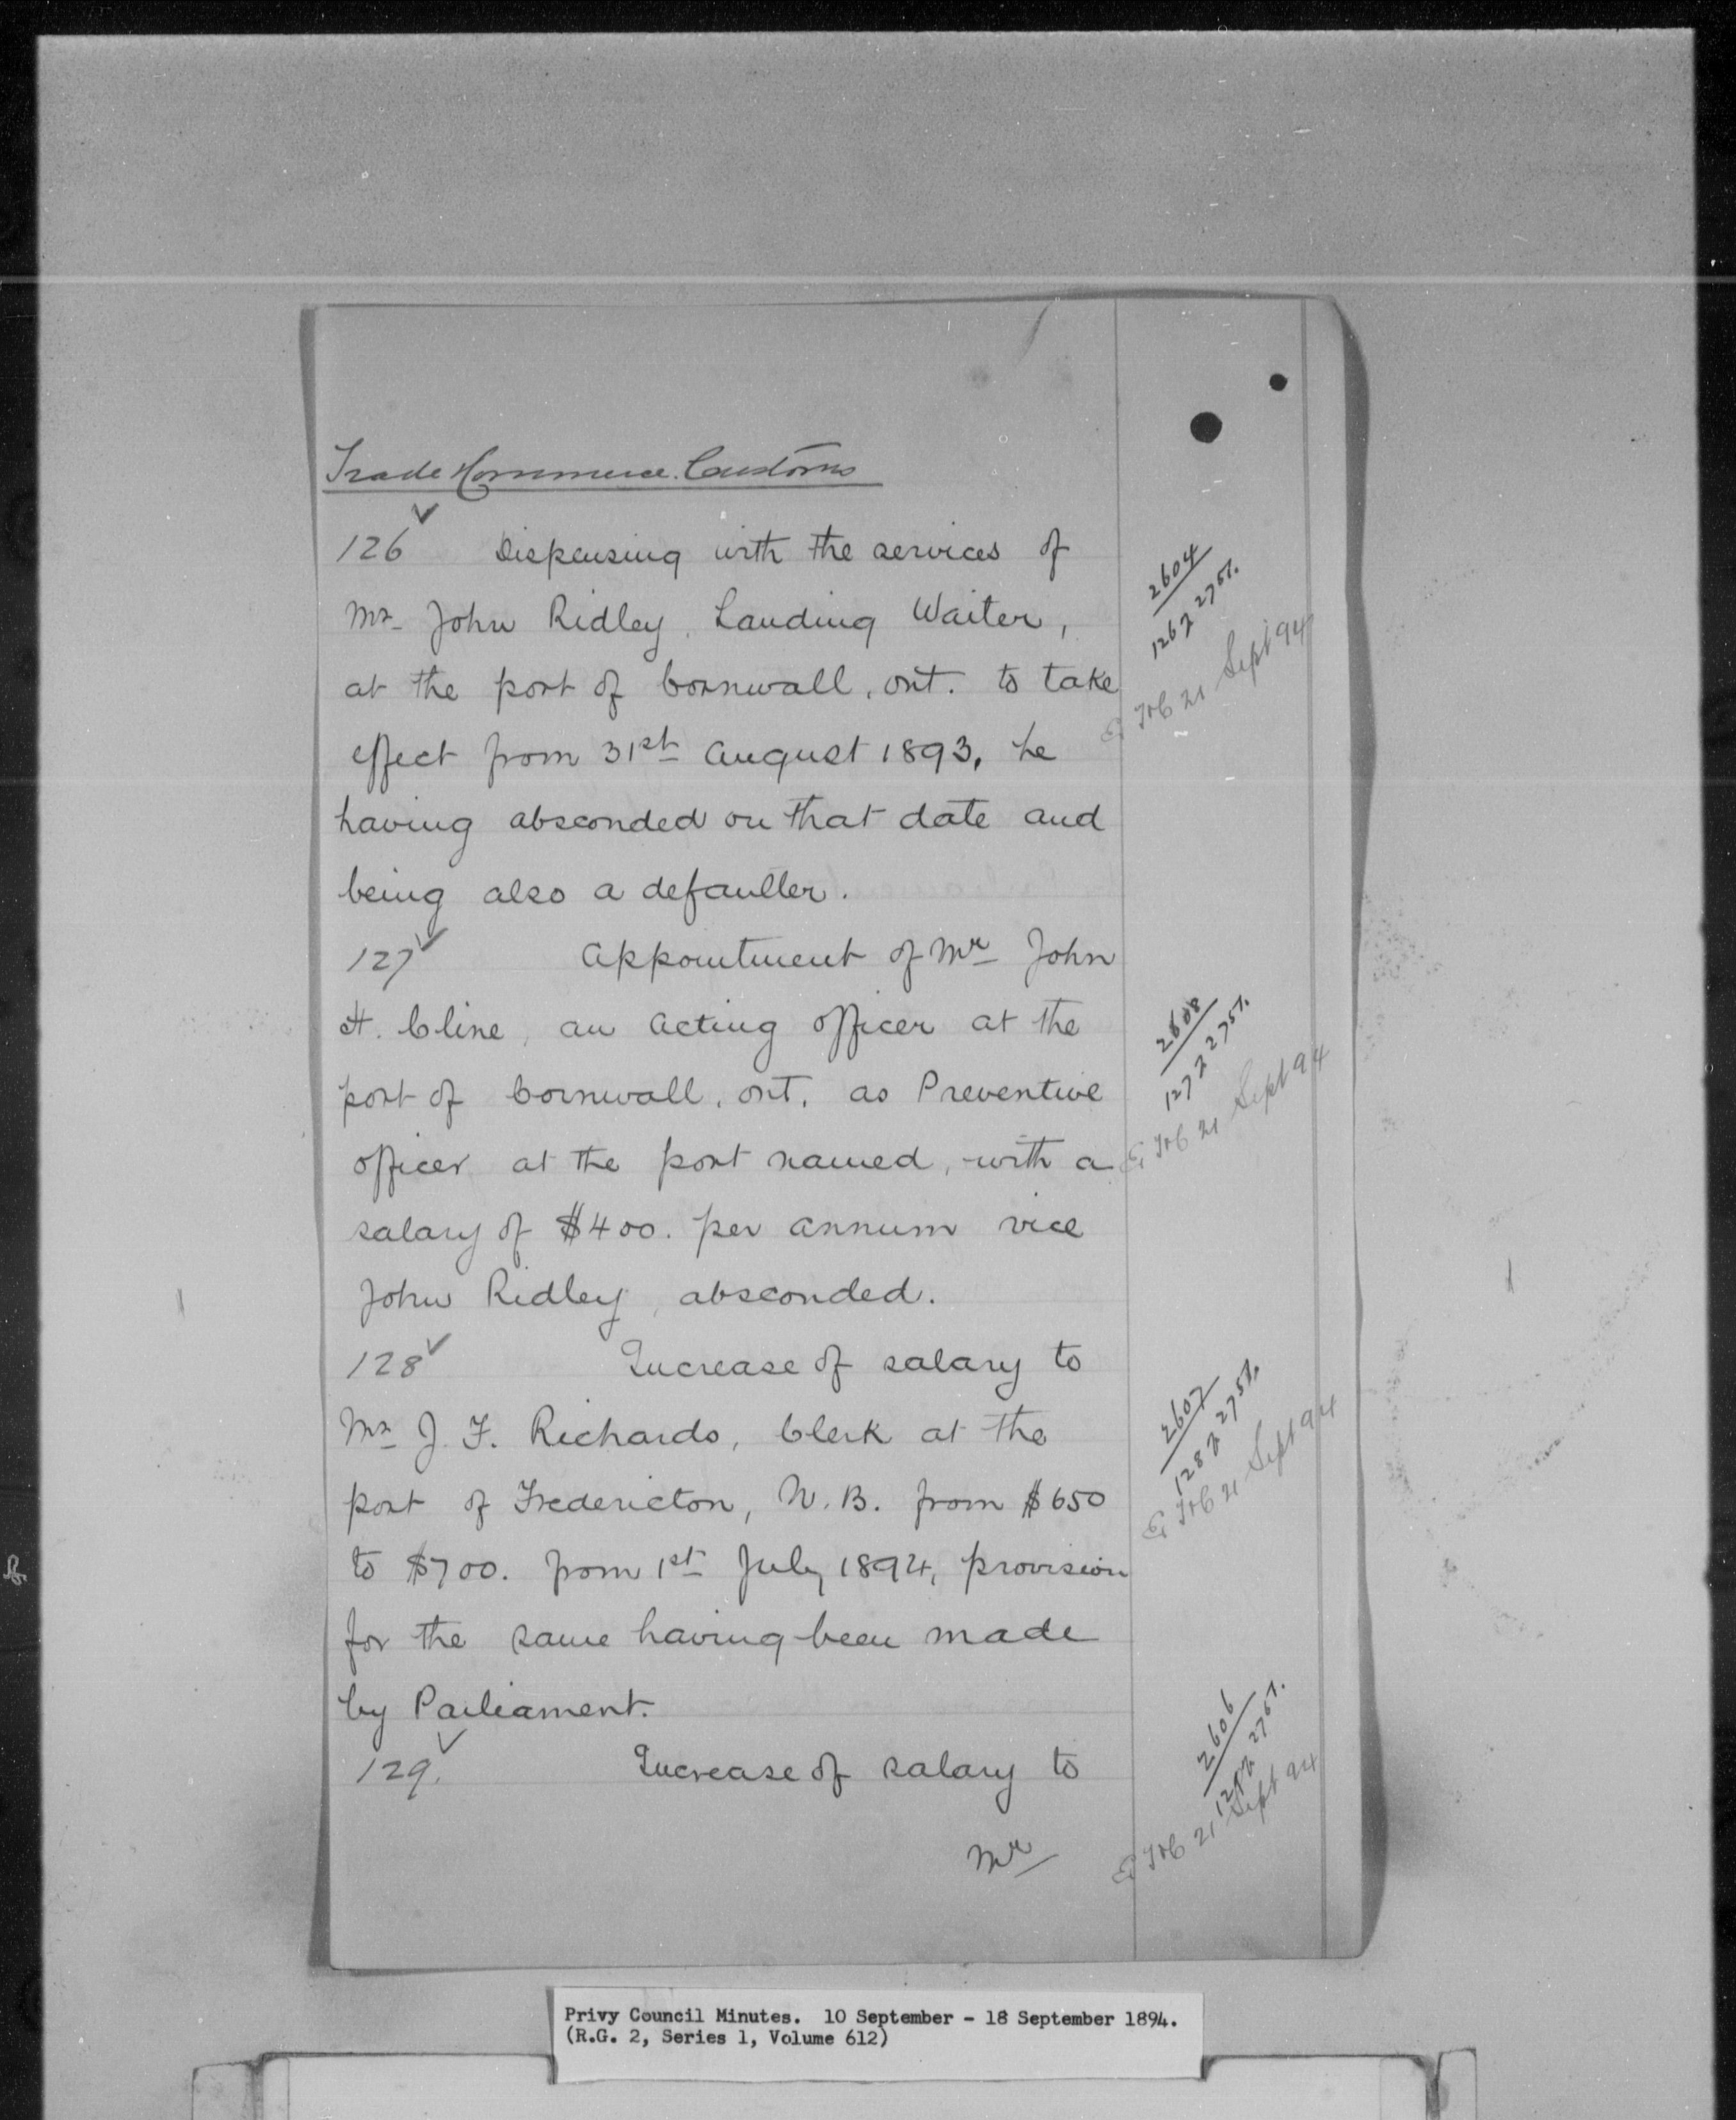 Trade & Commerce. Customs
126 Dispensing with the services of
Mr John Ridley, Landing Waiter,
at the port of Cornwall, Ont. to take
effect from 31st August 1893, he
having absconded on that date and
being also a defaulter.
127 Appointment of Mr John
H. Cline, an acting officer at the
port of Cornwall, Ont. as Preventive
officer at the port named, with a
salary of $400. per annum vice
John Ridley, absconded.
128 Increase of salary to
Mr J. F. Richards, Clerk at the
port of Fredericton, N.B. from $650
to $700. from 1st July 1894, provision
for the same having been made
by Parliament.
129. Increase of salary to
Mr
2604
21 Sept 94
2608
21 Sept 94
2607
21 Sept 94
2606
21 Sept 94
Privy Council Minutes. 10 September - 18 September 1894.
(R.G. 2, Series 1, Volume 612)